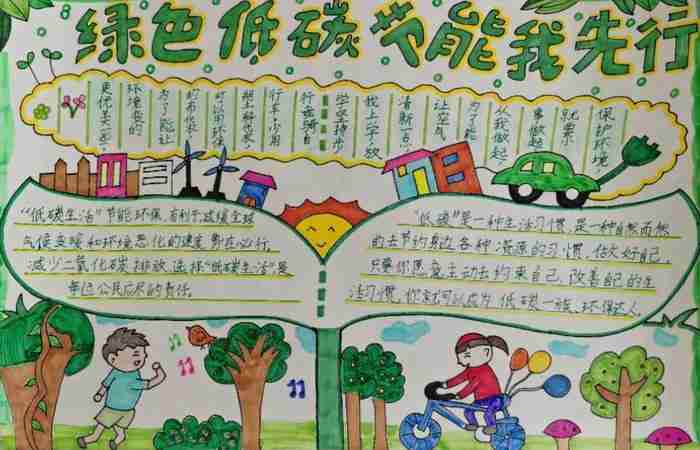 绿色低碳 节能我先行
保护环境,
就要
事做起,
从我做起,
为了能
让空气
清新一点,
我上学放
学坚持步
行或骑自
行车,少用
塑料代
环保
的布代
为了能让
环境变的
更优美一些。
“低碳生活”节能环保,有利于减缓全球
气候变暖和环境恶化的速度,势在必行。
减少二氧化碳排放,选择“低碳生活”,是
每位公民应尽的责任。
“低碳”是一种生活习惯,是一种自然而然
的去节约身边各种资源的习惯,
只要你愿意主动去约束自己,改善自己的生
活习惯,你就可以成为低碳一族,环保达人。